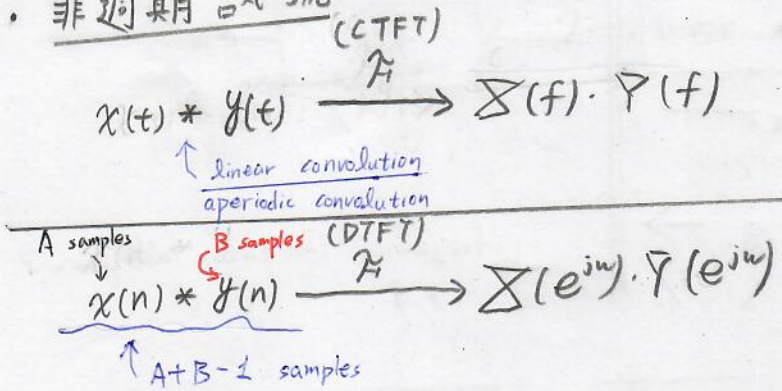 • 非週期
(CTFT)
x(t) * y(t) ⟶ X(f)·Y(f)
F
↑ linear convolution
aperiodic convolution
A samples
B samples
(DTFT)
F
x(n) * y(n) ⟶ X(e^{jw})·Y(e^{jw})
↑ A+B-1 samples